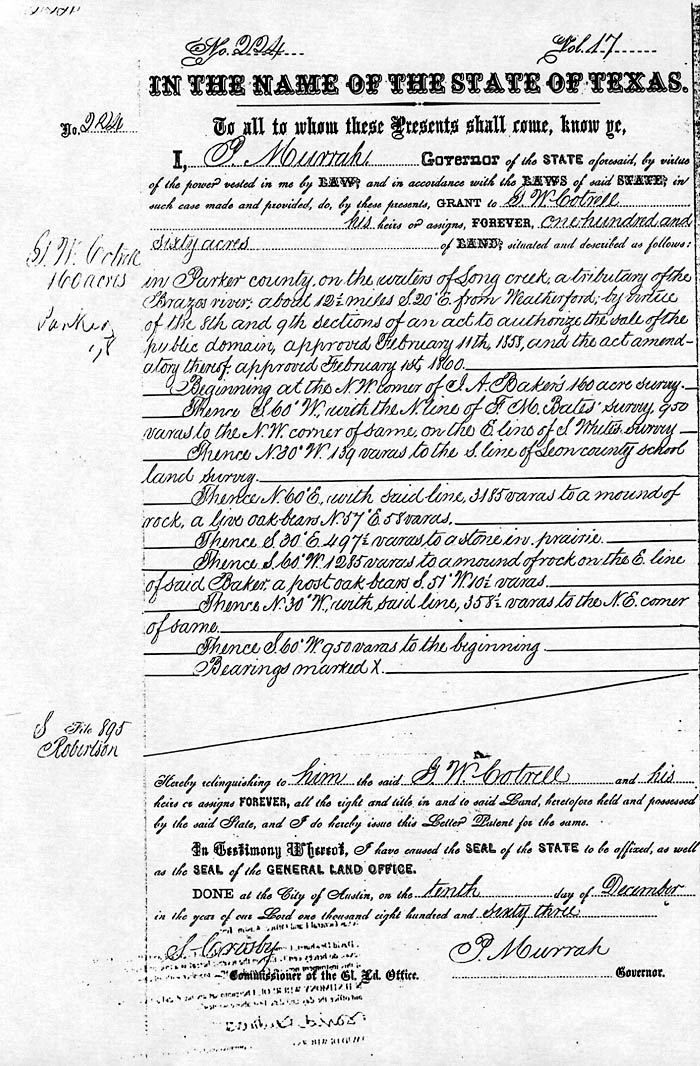 No. 224
Vol. 17
IN THE NAME OF THE STATE OF TEXAS.
No. 224
To all to whom these Presents shall come, know ye,
I, P. Murrah, Governor of the STATE aforesaid, by virtue
of the power vested in me by LAW; and in accordance with the LAWS of said STATE; in
such case made and provided, do, by these presents, GRANT to G. W. Cotrell
his heirs or assigns, FOREVER, one hundred and
sixty acres of LAND; situated and described as follows:
G. W. Cotrell
160 acres
Parker
in Parker county, on the waters of Long creek, a tributary of the
Brazos river; about 12½ miles S. 20° E. from Weatherford; by virtue
of the 8th and 9th sections of an act to authorize the sale of the
public domain, approved February 11th, 1858, and the act amend-
atory thereof approved February 1st, 1860.
Beginning at the N. W. corner of J. A. Baker's 160 acre survey.
Thence S. 60° W., with the N. line of F. M. Bates' survey, 900
varas to the N. W. corner of same, on the E. line of S. Whites survey
Thence N. 30° W. 139 varas to the S. line of Leon county school
land survey.
Thence N. 60° E., with said line, 3185 varas to a mound of
rock, a live oak bears N. 57° E. 58 varas.
Thence S. 30° E. 497½ varas to a stone in prairie.
Thence S. 60° W. 1285 varas to a mound of rock on the E. line
of said Baker, a post oak bears S. 51° W. 10½ varas
Thence N. 30° W., with said line, 358½ varas to the N. E. corner
of same.
Thence S. 60° W. 950 varas to the beginning
Bearings marked X.
S File 895
Robertson
Hereby relinquishing to him the said G. W. Cotrell and his
heirs or assigns FOREVER, all the right and title in and to said Land, heretofore held and possessed
by the said State, and I do hereby issue this Letter Patent for the same.
In Testimony Whereof, I have caused the SEAL of the STATE to be affixed, as well
as the SEAL of the GENERAL LAND OFFICE.
DONE at the City of Austin, on the tenth day of December
in the year of our Lord one thousand eight hundred and sixty three
S. Crosby
P. Murrah
Commissioner of the Gl. Ld. Office.
Governor.